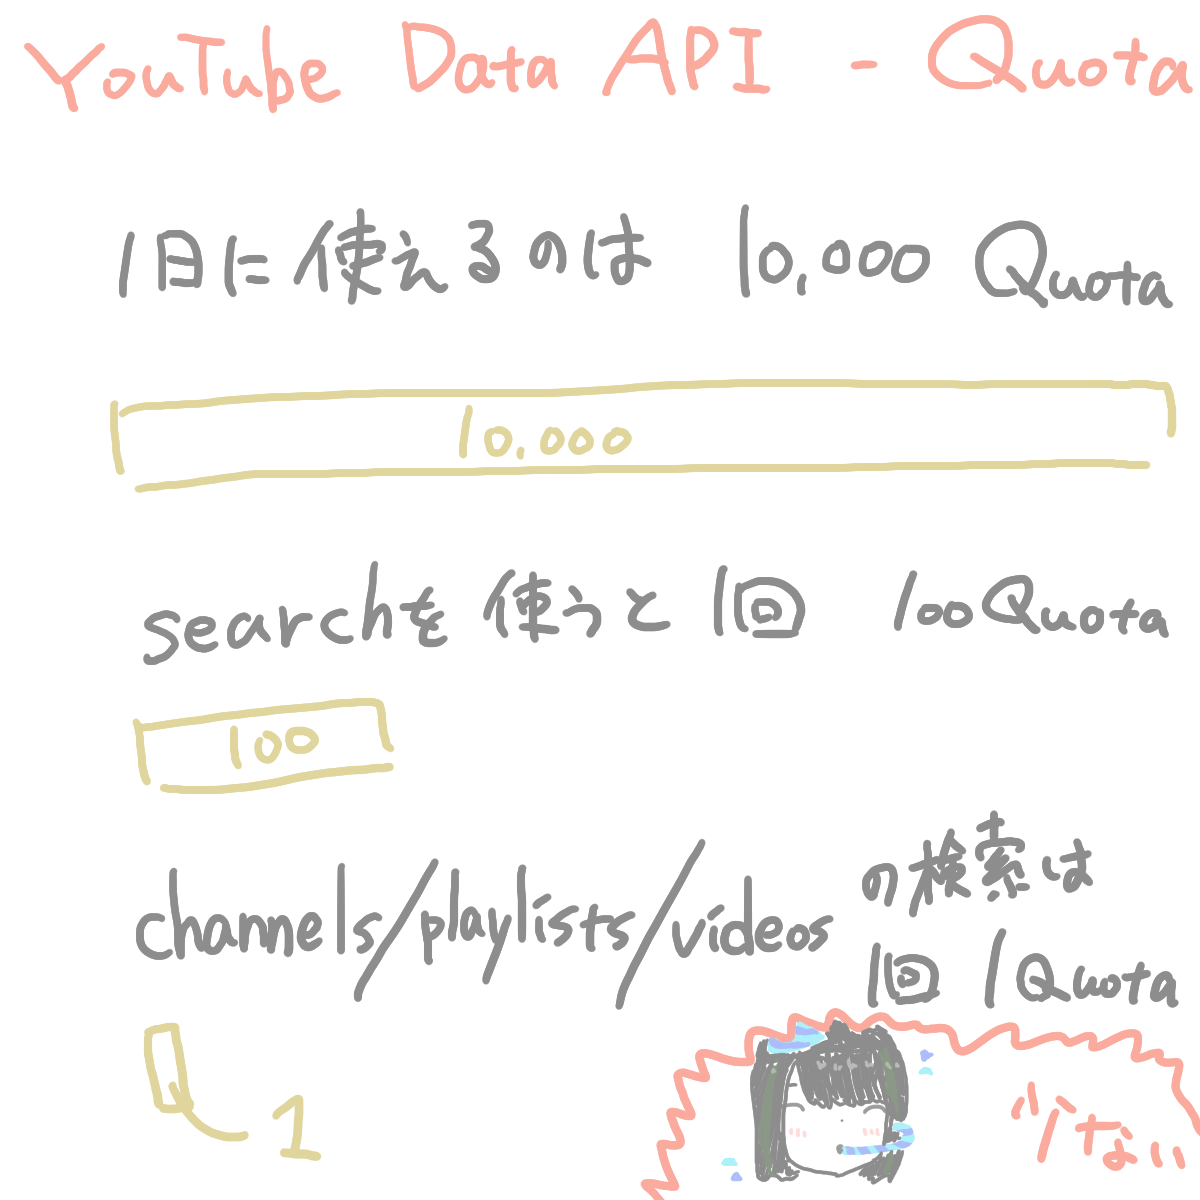 YouTube Data API - Quota
1日に使えるのは 10,000 Quota
10,000
searchを使うと 1回 100Quota
100
channels/playlists/videos の検索は
1回 1Quota
1
少ない